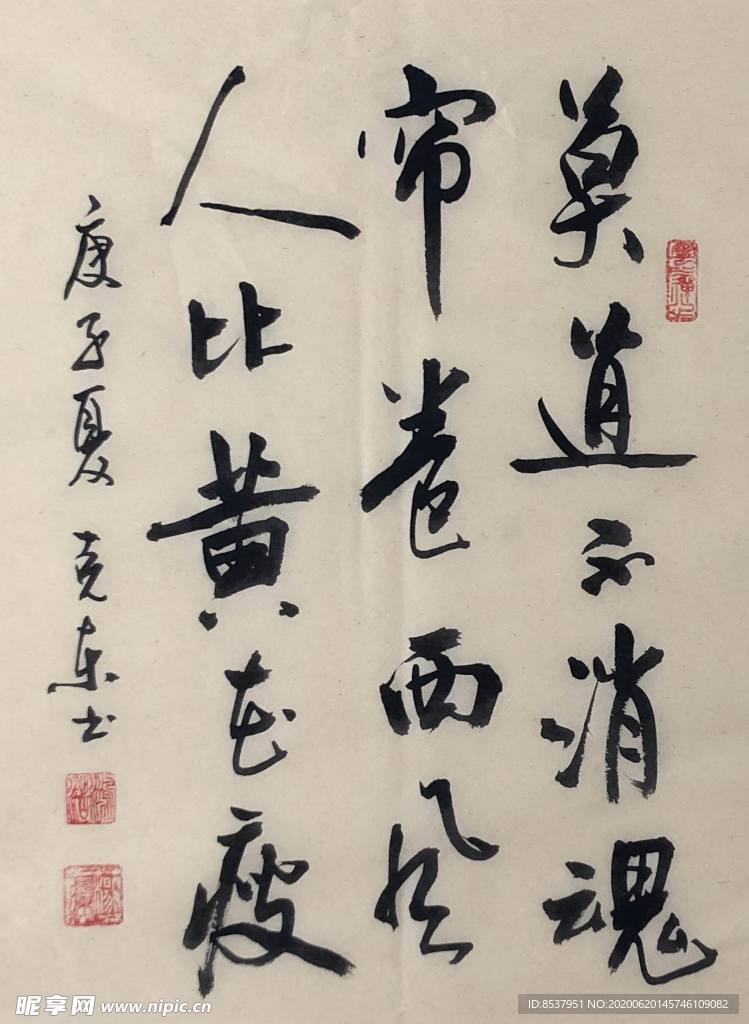 莫道不消魂
帘卷西风
人比黄花瘦
庚子夏 克东书
昵享网 www.nipic.cn
ID:8537951 NO:20200620145746109082